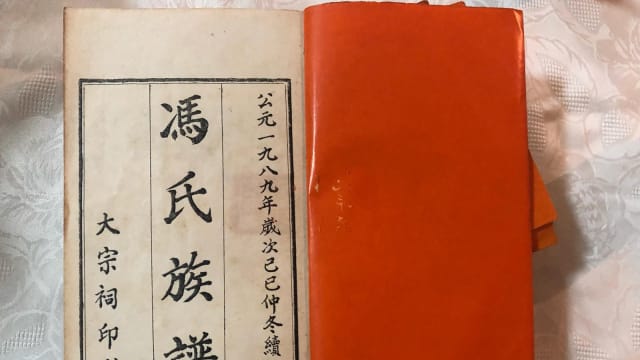 公元一九八九年歲次己巳仲冬續
馮氏族譜
大宗祠印